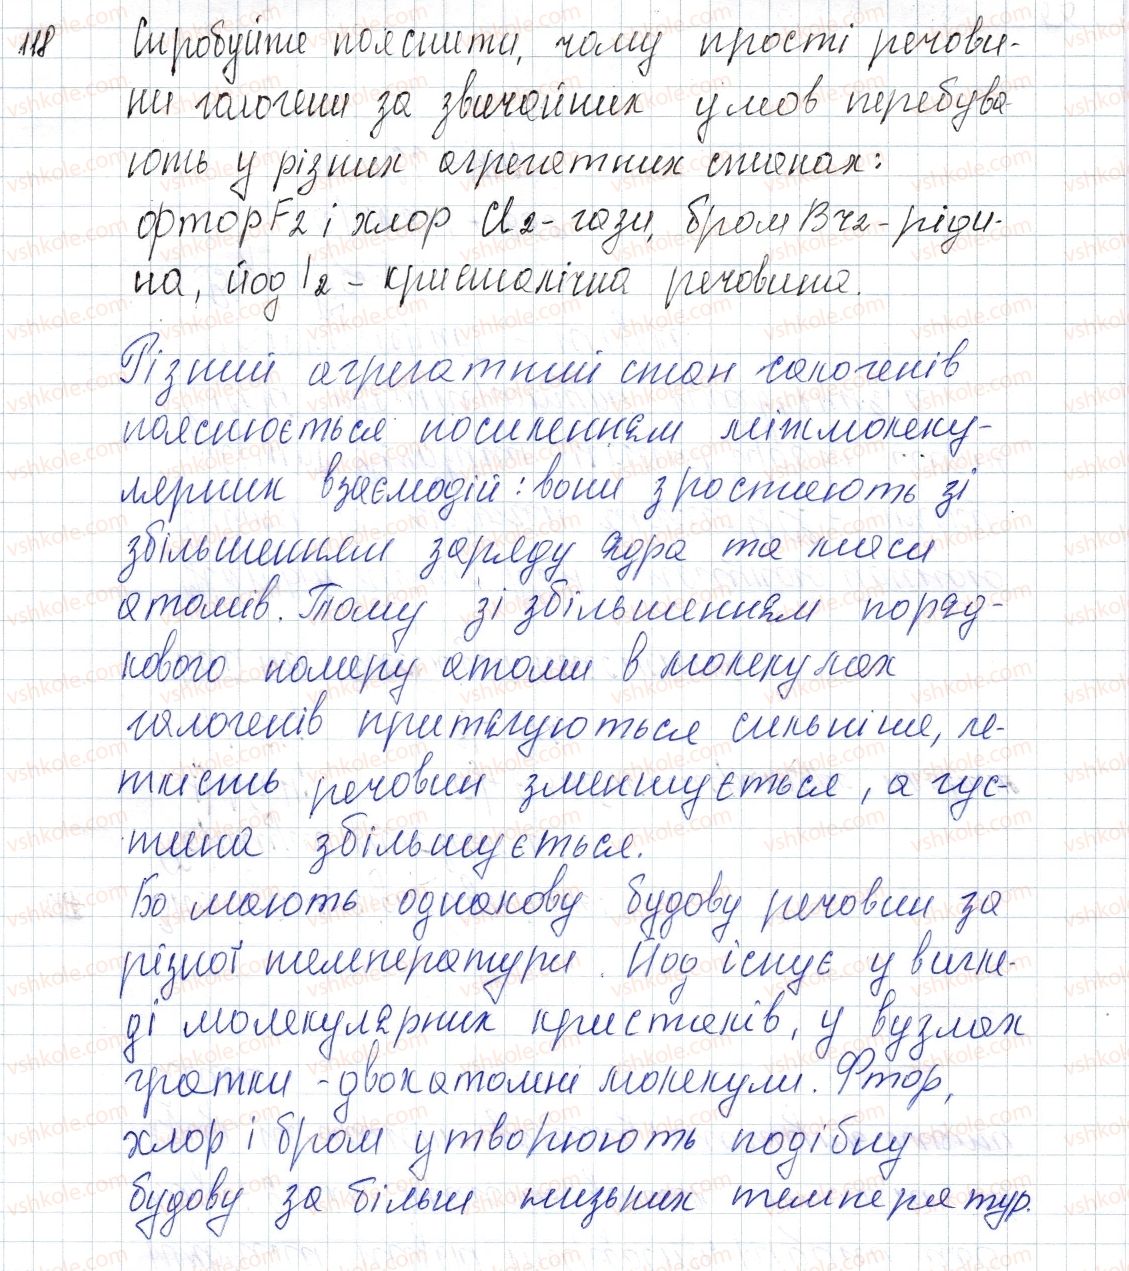 118 Спробуйте пояснити, чому прості речови-
ни галогени за звичайних умов перебува
ють у різних агрегатних станах:
фтор F2 і хлор Cl2 - гази, бром Br2 - ріди-
на, йод I2 - кристалічна речовина.
Різний агрегатний стан галогенів
пояснюється посиленням міжмолеку-
лярних взаємодій: вони зростають зі
збільшенням заряду ядра та маси
атомів. Тому зі збільшенням поряд-
кового номеру атоми в молекулах
галогенів притягуються сильніше, ле-
ткість речовин зменшується, а гус-
тина збільшується.
Бо мають однакову будову речовин за
різної температури. Йод існує у вигля-
ді молекулярних кристалів, у вузлах
гратки - двохатомні молекули. Фтор,
хлор і бром утворюють подібну
будову за більш низьких температур.